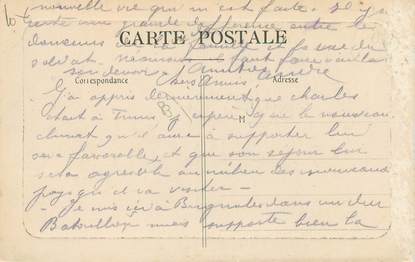 nouvelle vie qui m'est faite. Il y a
reste une grande différence entre la
douceurs de la famille et la vie du
CARTE POSTALE
soldat. néanmoins faut faire vaillamment
son devoir
Correspondance
Adresse
Chers Amis
J'ai appris dernièrement que Charles
était à Tunis j'espère que le nouveau
climat qu'il aura à supporter lui
sera favorable et que son séjour lui
sera agréable au milieu des nouveaux
pays qu'il va visiter
M
Je suis ici à Brignoles dans un dur
Bataillon mais supporte bien la